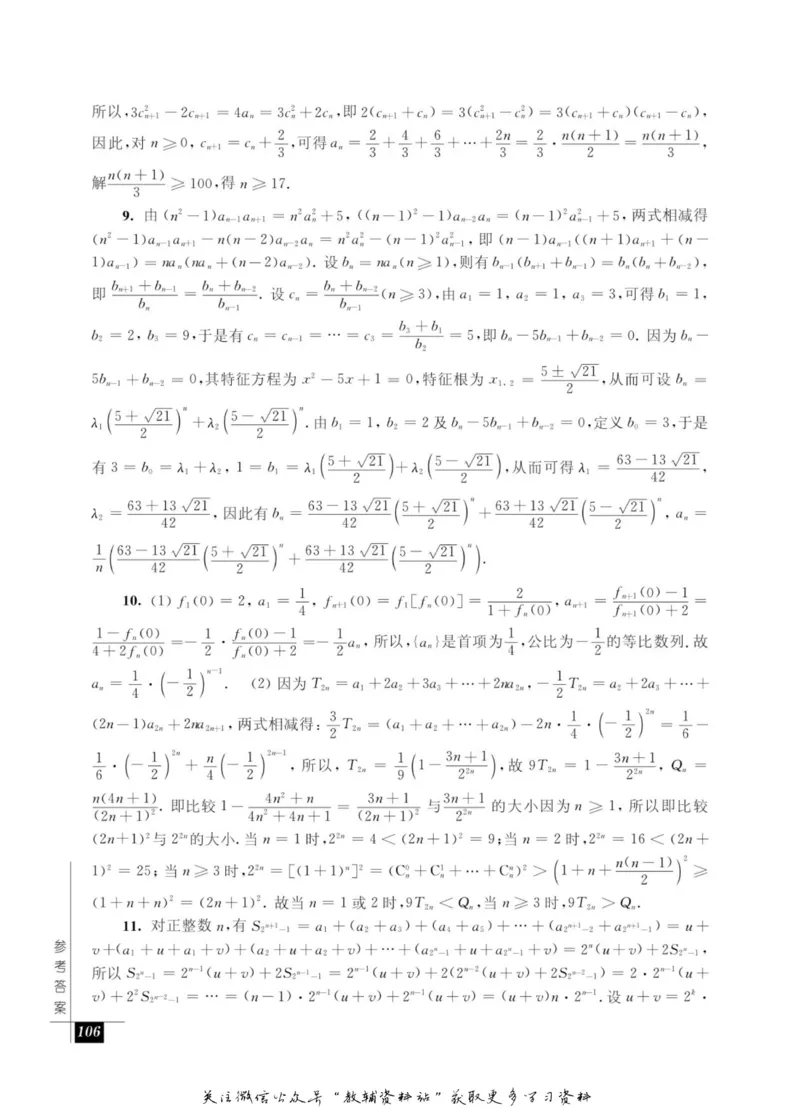 所以,3c²ₙ₊₁ − 2cₙ₊₁ = 4aₙ = 3c²ₙ + 2cₙ,即 2(cₙ₊₁ + cₙ) = 3(c²ₙ₊₁ − c²ₙ) = 3(cₙ₊₁ + cₙ)(cₙ₊₁ − cₙ),
因此,对 n ≥ 0, cₙ₊₁ = cₙ + 2/3,可得 aₙ = 2/3 + 4/3 + 6/3 + ⋯ + 2n/3 = 2/3 · n(n+1)/2 = n(n+1)/3,
解 n(n+1)/3 ≥ 100,得 n ≥ 17.
9. 由 (n² − 1)aₙ₋₁aₙ₊₁ = n²a²ₙ + 5, ((n−1)² − 1)aₙ₋₂aₙ = (n−1)²a²ₙ₋₁ + 5, 两式相减得
(n² − 1)aₙ₋₁aₙ₊₁ − n(n−2)aₙ₋₂aₙ = n²a²ₙ − (n−1)²a²ₙ₋₁, 即 (n−1)aₙ₋₁((n+1)aₙ₊₁ + (n−
1)aₙ₋₁) = naₙ(naₙ + (n−2)aₙ₋₂). 设 bₙ = naₙ(n ≥ 1),则有 bₙ₋₁(bₙ₊₁ + bₙ₋₁) = bₙ(bₙ + bₙ₋₂),
即 (bₙ₊₁ + bₙ₋₁)/bₙ = (bₙ + bₙ₋₂)/bₙ₋₁. 设 cₙ = (bₙ + bₙ₋₂)/bₙ₋₁ (n ≥ 3),由 a₁ = 1, a₂ = 1, a₃ = 3,可得 b₁ = 1,
b₂ = 2, b₃ = 9,于是有 cₙ = cₙ₋₁ = ⋯ = c₃ = (b₃ + b₁)/b₂ = 5,即 bₙ − 5bₙ₋₁ + bₙ₋₂ = 0. 因为 bₙ −
5bₙ₋₁ + bₙ₋₂ = 0,其特征方程为 x² − 5x + 1 = 0,特征根为 x₁,₂ = (5 ± √21)/2,从而可设 bₙ =
λ₁((5 + √21)/2)ⁿ + λ₂((5 − √21)/2)ⁿ. 由 b₁ = 1, b₂ = 2 及 bₙ − 5bₙ₋₁ + bₙ₋₂ = 0,定义 b₀ = 3,于是
有 3 = b₀ = λ₁ + λ₂, 1 = b₁ = λ₁((5 + √21)/2) + λ₂((5 − √21)/2),从而可得 λ₁ = (63 − 13√21)/42,
λ₂ = (63 + 13√21)/42,因此有 bₙ = (63 − 13√21)/42 ((5 + √21)/2)ⁿ + (63 + 13√21)/42 ((5 − √21)/2)ⁿ, aₙ =
1/n ((63 − 13√21)/42 ((5 + √21)/2)ⁿ + (63 + 13√21)/42 ((5 − √21)/2)ⁿ).
10. (1) f₁(0) = 2, a₁ = 1/4, fₙ₊₁(0) = f₁[fₙ(0)] = 2/(1 + fₙ(0)), aₙ₊₁ = (fₙ₊₁(0) − 1)/(fₙ₊₁(0) + 2) =
(1 − fₙ(0))/(4 + 2fₙ(0)) = −1/2 · (fₙ(0) − 1)/(fₙ(0) + 2) = −1/2 aₙ, 所以,{aₙ}是首项为 1/4,公比为 −1/2 的等比数列. 故
aₙ = 1/4 · (−1/2)ⁿ⁻¹. (2) 因为 T₂ₙ = a₁ + 2a₂ + 3a₃ + ⋯ + 2na₂ₙ, −1/2 T₂ₙ = a₂ + 2a₃ + ⋯ +
(2n−1)a₂ₙ + 2na₂ₙ₊₁, 两式相减得: 3/2 T₂ₙ = (a₁ + a₂ + ⋯ + a₂ₙ) − 2n · 1/4 · (−1/2)²ⁿ = 1/6 −
1/6 · (−1/2)²ⁿ + n/4 (−1/2)²ⁿ⁻¹, 所以, T₂ₙ = 1/9 (1 − (3n+1)/2²ⁿ), 故 9T₂ₙ = 1 − (3n+1)/2²ⁿ, Qₙ =
n(4n+1)/(2n+1)². 即比较 1 − (4n² + n)/(4n² + 4n + 1) = (3n+1)/(2n+1)² 与 (3n+1)/2²ⁿ 的大小因为 n ≥ 1, 所以即比较
(2n+1)² 与 2²ⁿ 的大小. 当 n = 1 时, 2²ⁿ = 4 < (2n+1)² = 9; 当 n = 2 时, 2²ⁿ = 16 < (2n+
1)² = 25; 当 n ≥ 3 时, 2²ⁿ = [(1+1)ⁿ]² = (C⁰ₙ + C¹ₙ + ⋯ + Cⁿₙ)² > (1 + n + n(n−1)/2)² ≥
(1 + n + n)² = (2n+1)². 故当 n = 1 或 2 时, 9T₂ₙ < Qₙ, 当 n ≥ 3 时, 9T₂ₙ > Qₙ.
11. 对正整数 n, 有 S_{2ⁿ⁺¹−1} = a₁ + (a₂ + a₃) + (a₄ + a₅) + ⋯ + (a_{2ⁿ⁺¹−2} + a_{2ⁿ⁺¹−1}) = u +
v + (a₁ + u + a₁ + v) + (a₂ + u + a₂ + v) + ⋯ + (a_{2ⁿ−1} + u + a_{2ⁿ−1} + v) = 2ⁿ(u + v) + 2S_{2ⁿ−1},
所以 S_{2ⁿ−1} = 2ⁿ⁻¹(u + v) + 2S_{2ⁿ⁻¹−1} = 2ⁿ⁻¹(u + v) + 2(2ⁿ⁻²(u + v) + 2S_{2ⁿ⁻²−1}) = 2 · 2ⁿ⁻¹(u +
v) + 2²S_{2ⁿ⁻²−1} = ⋯ = (n−1) · 2ⁿ⁻¹(u + v) + 2ⁿ⁻¹(u + v) = (u + v)n · 2ⁿ⁻¹. 设 u + v = 2ᵏ ·
参考答案
106
关注微信公众号“教辅资料站”获取更多学习资料